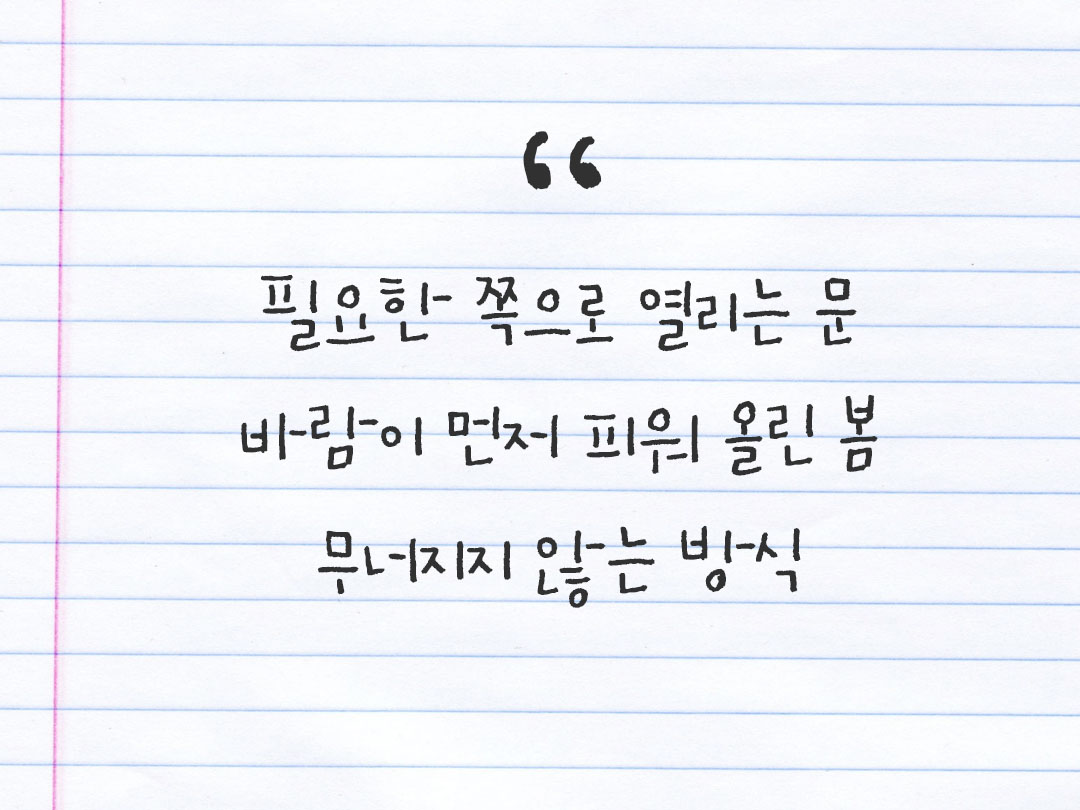 “
필요한 쪽으로 열리는 문
바람이 먼저 피워 올린 봄
무너지지 않는 방식